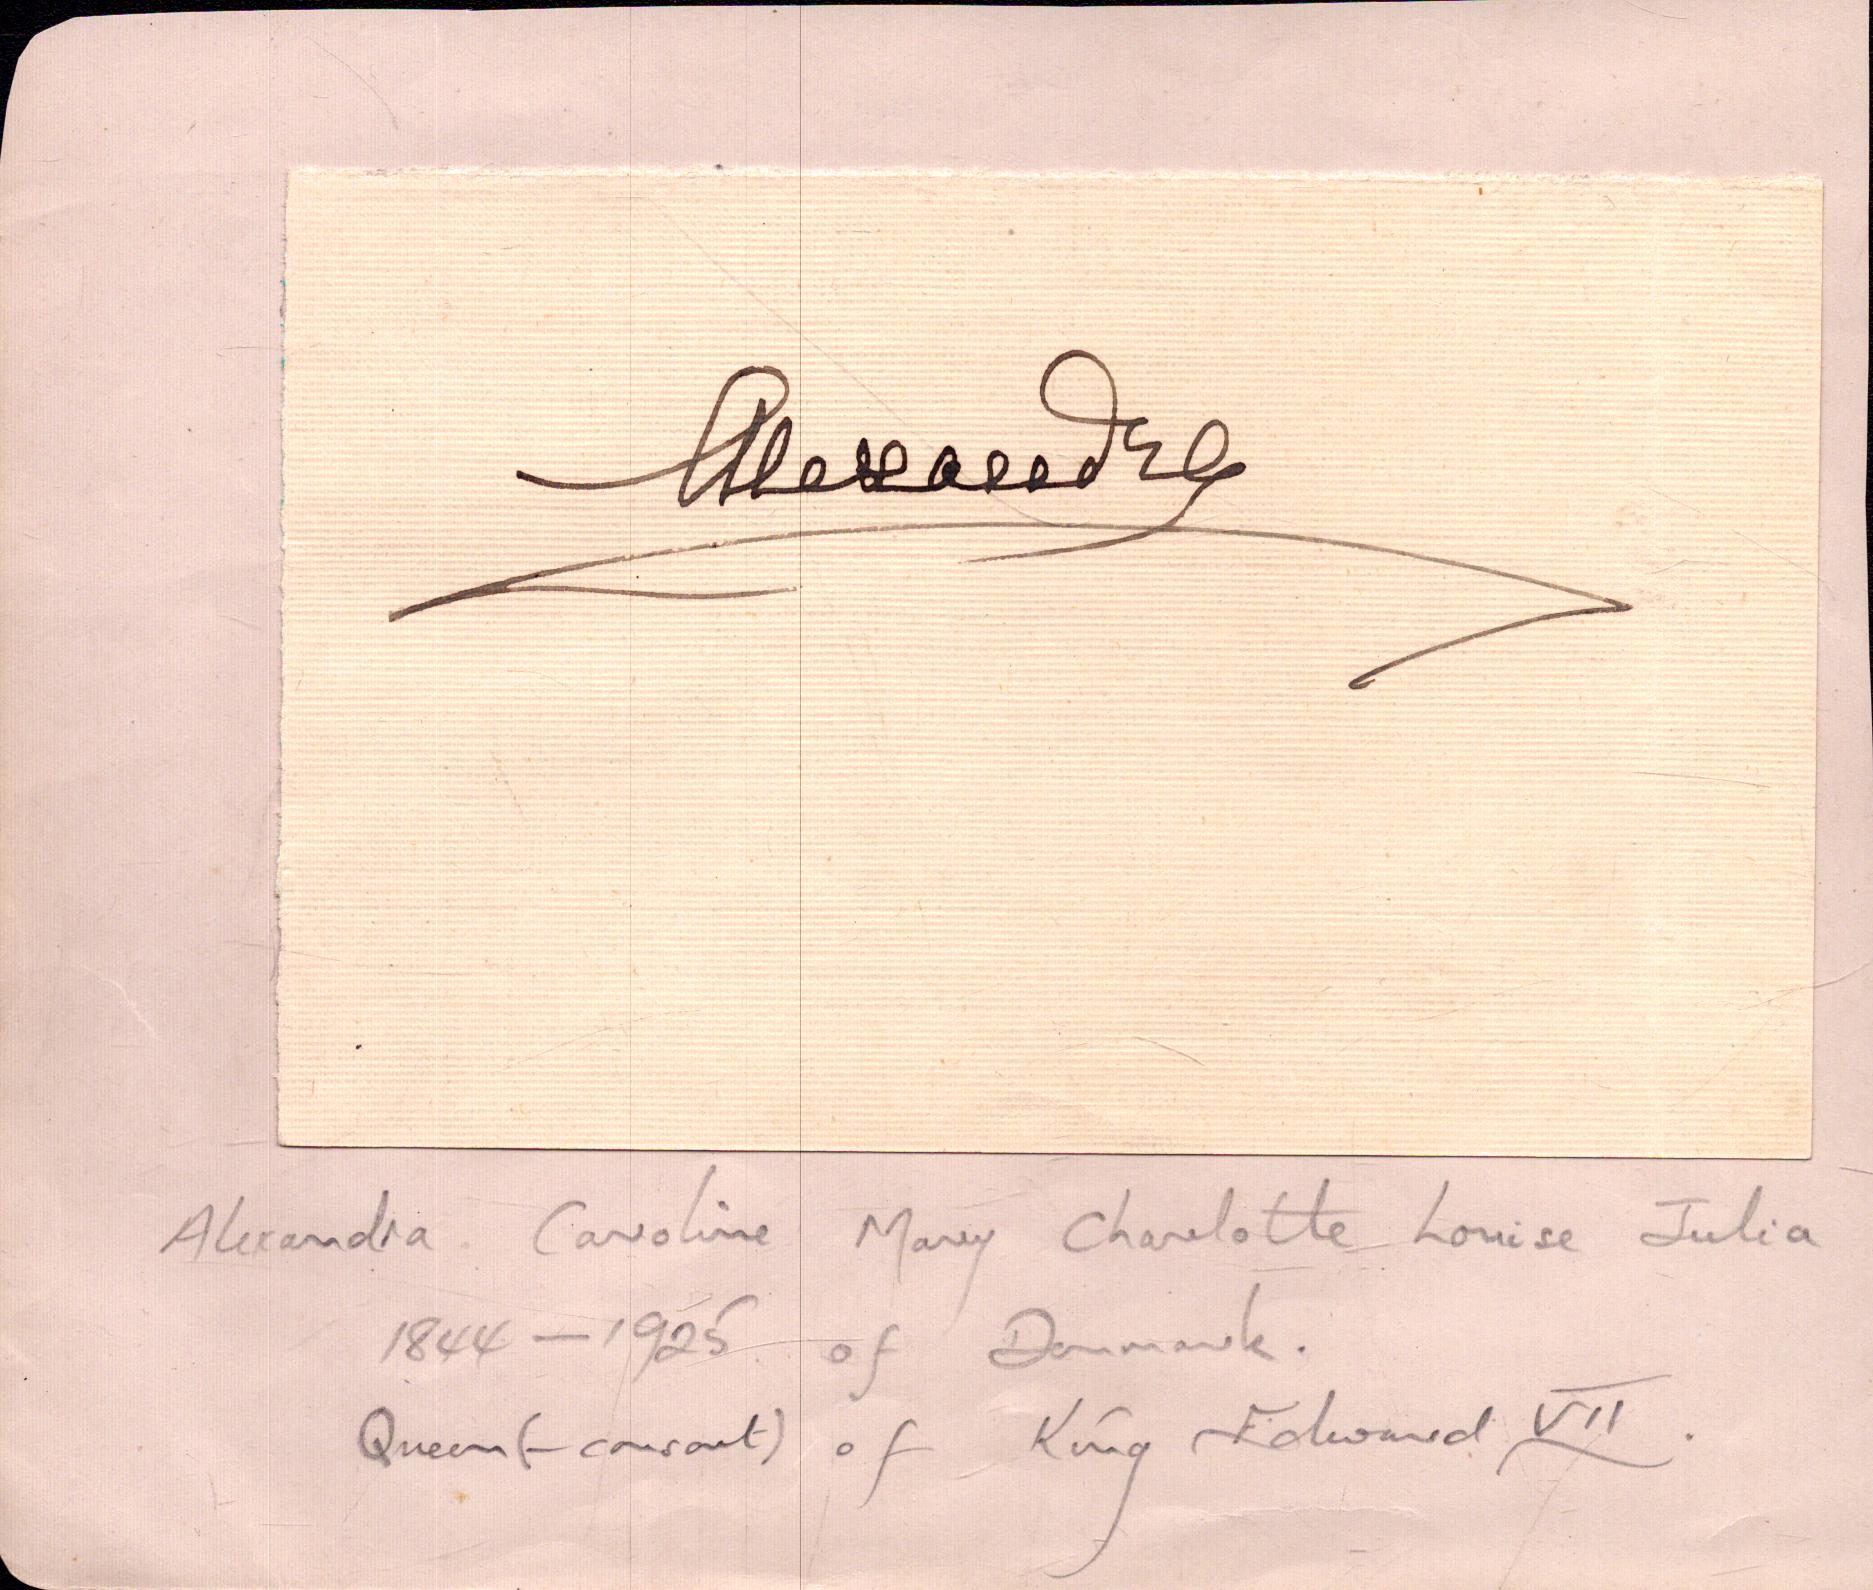 Alexandra
Alexandra Caroline Mary Charlotte Louise Julia
1844 — 1925 of Denmark.
Queen (-consort) of King Edward VII.